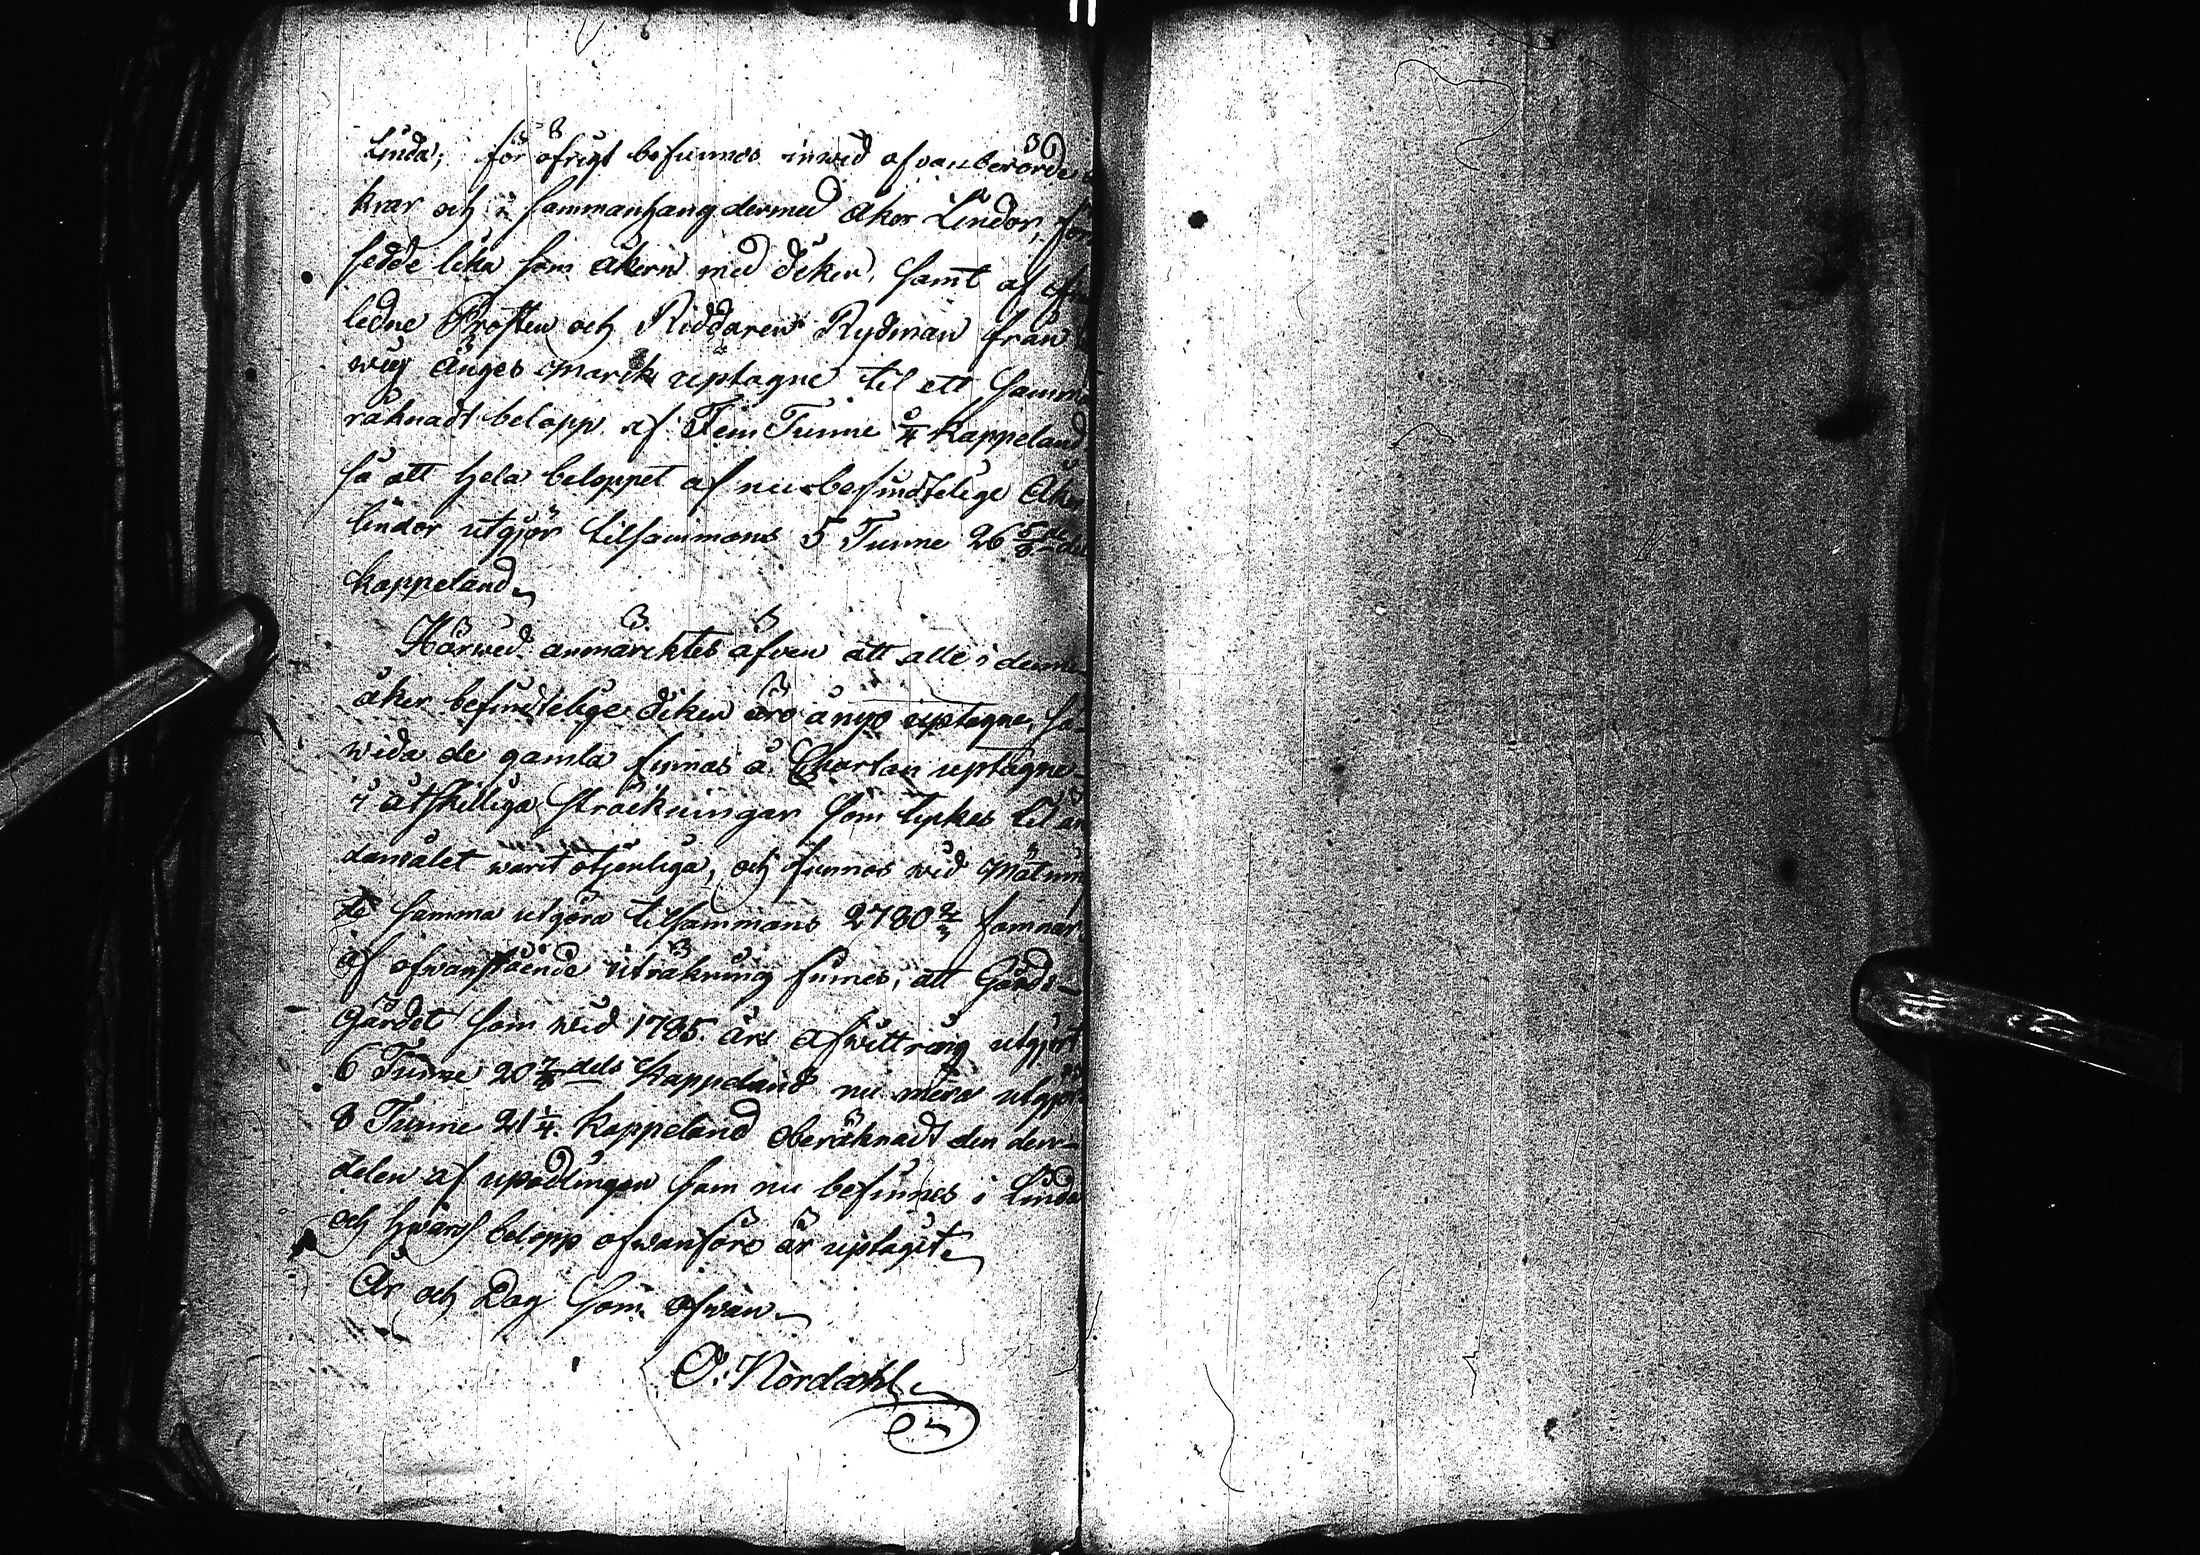 Linda; för öfrigt befunnos inwid ofvanberörde
krar och i sammanhang dermed åker Lindor, för
sedde lika som åkern med diken, samt af
ledne Prosten och Riddaren Rydman från
wug änges marck uptagne til ett samman
räknadt belopp af Fem Tunne kappeland
så att hela beloppet af nu befindtelige Åker
lindor utgjör tilsammans 5 Tunne 26 5/8 del
kappeland.
Härwed anmärcktes äfven att alle i denne
åker befindtelige diken äro å nyo uptagne, så-
wida de gamla finnas å Chartan uptagne
i åtskilliga sträckningar som tyckes til än
damålet warit otjenliga, och funnos wid Mätning
de samma utgöra tilsammans 2780 2/3 famnar.
af ofwanstående uträkning finnes, att Gårds-
Gärdet som wid 1785 års afwittring utgjort
6 Tunne 20 7/8 dels Kappeland nu mera utgjör
8 Tunne 21 1/4 kappeland oberäknadt den den-
delen af upodlingen som nu befinnes i Linda
och hwars belopp ofwanföre är uptagit.
År och Dag som ofwan.
O. Nordahl